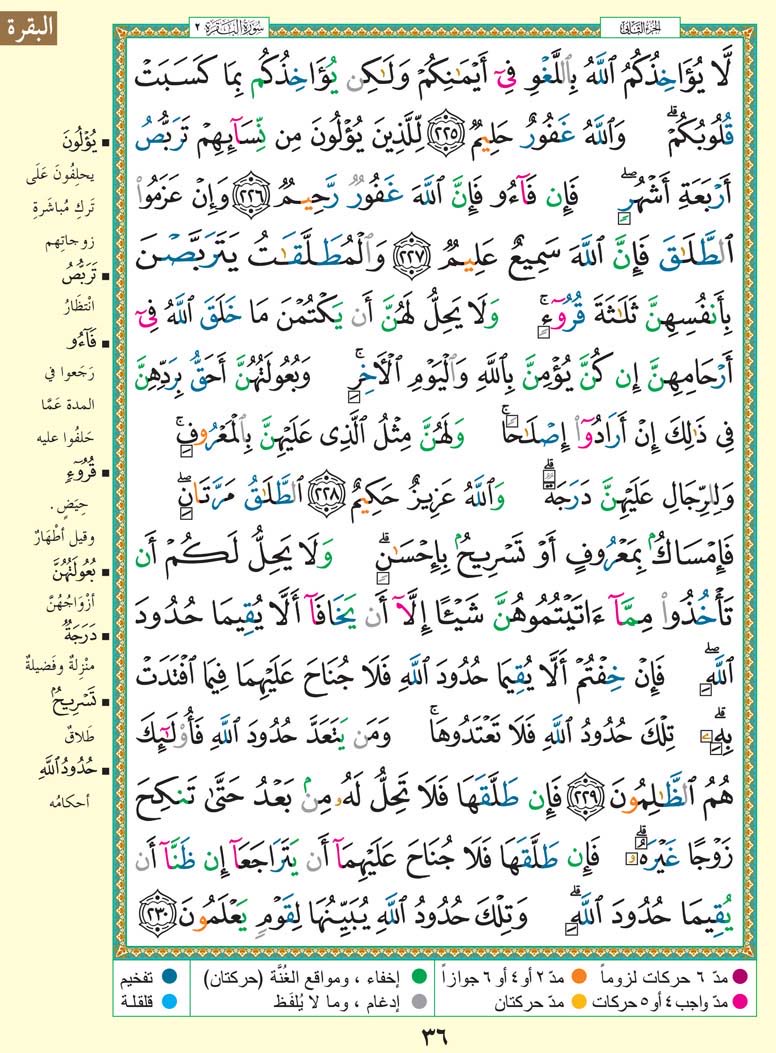 البقرة
الجزء الثاني
سورة البقرة ٢
لَّا يُؤَاخِذُكُمُ ٱللَّهُ بِٱللَّغْوِ فِىٓ أَيْمَٰنِكُمْ وَلَٰكِن يُؤَاخِذُكُم بِمَا كَسَبَتْ
قُلُوبُكُمْ ۗ وَٱللَّهُ غَفُورٌ حَلِيمٌ ٢٢٥ لِّلَّذِينَ يُؤْلُونَ مِن نِّسَآئِهِمْ تَرَبُّصُ
أَرْبَعَةِ أَشْهُرٍ ۖ فَإِن فَآءُو فَإِنَّ ٱللَّهَ غَفُورٌ رَّحِيمٌ ٢٢٦ وَإِنْ عَزَمُوا۟
ٱلطَّلَٰقَ فَإِنَّ ٱللَّهَ سَمِيعٌ عَلِيمٌ ٢٢٧ وَٱلْمُطَلَّقَٰتُ يَتَرَبَّصْنَ
بِأَنفُسِهِنَّ ثَلَٰثَةَ قُرُوٓءٍ ۚ وَلَا يَحِلُّ لَهُنَّ أَن يَكْتُمْنَ مَا خَلَقَ ٱللَّهُ فِىٓ
أَرْحَامِهِنَّ إِن كُنَّ يُؤْمِنَّ بِٱللَّهِ وَٱلْيَوْمِ ٱلْءَاخِرِ ۚ وَبُعُولَتُهُنَّ أَحَقُّ بِرَدِّهِنَّ
فِى ذَٰلِكَ إِنْ أَرَادُوٓا۟ إِصْلَٰحًا ۚ وَلَهُنَّ مِثْلُ ٱلَّذِى عَلَيْهِنَّ بِٱلْمَعْرُوفِ ۚ
وَلِلرِّجَالِ عَلَيْهِنَّ دَرَجَةٌ ۗ وَٱللَّهُ عَزِيزٌ حَكِيمٌ ٢٢٨ ٱلطَّلَٰقُ مَرَّتَانِ ۖ
فَإِمْسَاكٌۢ بِمَعْرُوفٍ أَوْ تَسْرِيحٌۢ بِإِحْسَٰنٍ ۗ وَلَا يَحِلُّ لَكُمْ أَن
تَأْخُذُوا۟ مِمَّآ ءَاتَيْتُمُوهُنَّ شَيْـًٔا إِلَّآ أَن يَخَافَآ أَلَّا يُقِيمَا حُدُودَ
ٱللَّهِ ۖ فَإِنْ خِفْتُمْ أَلَّا يُقِيمَا حُدُودَ ٱللَّهِ فَلَا جُنَاحَ عَلَيْهِمَا فِيمَا ٱفْتَدَتْ
بِهِۦ ۗ تِلْكَ حُدُودُ ٱللَّهِ فَلَا تَعْتَدُوهَا ۚ وَمَن يَتَعَدَّ حُدُودَ ٱللَّهِ فَأُو۟لَٰٓئِكَ
هُمُ ٱلظَّٰلِمُونَ ٢٢٩ فَإِن طَلَّقَهَا فَلَا تَحِلُّ لَهُۥ مِنۢ بَعْدُ حَتَّىٰ تَنكِحَ
زَوْجًا غَيْرَهُۥ ۗ فَإِن طَلَّقَهَا فَلَا جُنَاحَ عَلَيْهِمَآ أَن يَتَرَاجَعَآ إِن ظَنَّآ أَن
يُقِيمَا حُدُودَ ٱللَّهِ ۗ وَتِلْكَ حُدُودُ ٱللَّهِ يُبَيِّنُهَا لِقَوْمٍ يَعْلَمُونَ ٢٣٠
▪ يُؤْلُونَ
يحلِفُونَ عَلَى
تَركِ مُباشَرةِ
زوجاتِهم
▪ تَرَبُّصُ
انْتظَارُ
▪ فَآءُو
رَجَعوا في
المدة عَمَّا
حَلفُوا عليه
▪ قُرُوٓءٍ
حِيَضٍ.
وقيل أطْهَارٌ
▪ بُعُولَتُهُنَّ
أزْوَاجُهُنَّ
▪ دَرَجَةٌ
مَنْزِلةٌ وفَضيلةٌ
▪ تَسْرِيحٌۢ
طَلاقٌ
▪ حُدُودُ ٱللَّهِ
أحكامُه
مدّ ٦ حركات لزوماً ● مدّ ٢ أو ٤ أو ٦ جوازاً
مدّ واجب ٤ أو ٥ حركات ● مدّ حركتان
إخفاء ، ومواقع الغُنَّة (حركتان)
إدغام ، وما لا يُلفَظ
تفخيم
قلقلة
٣٦